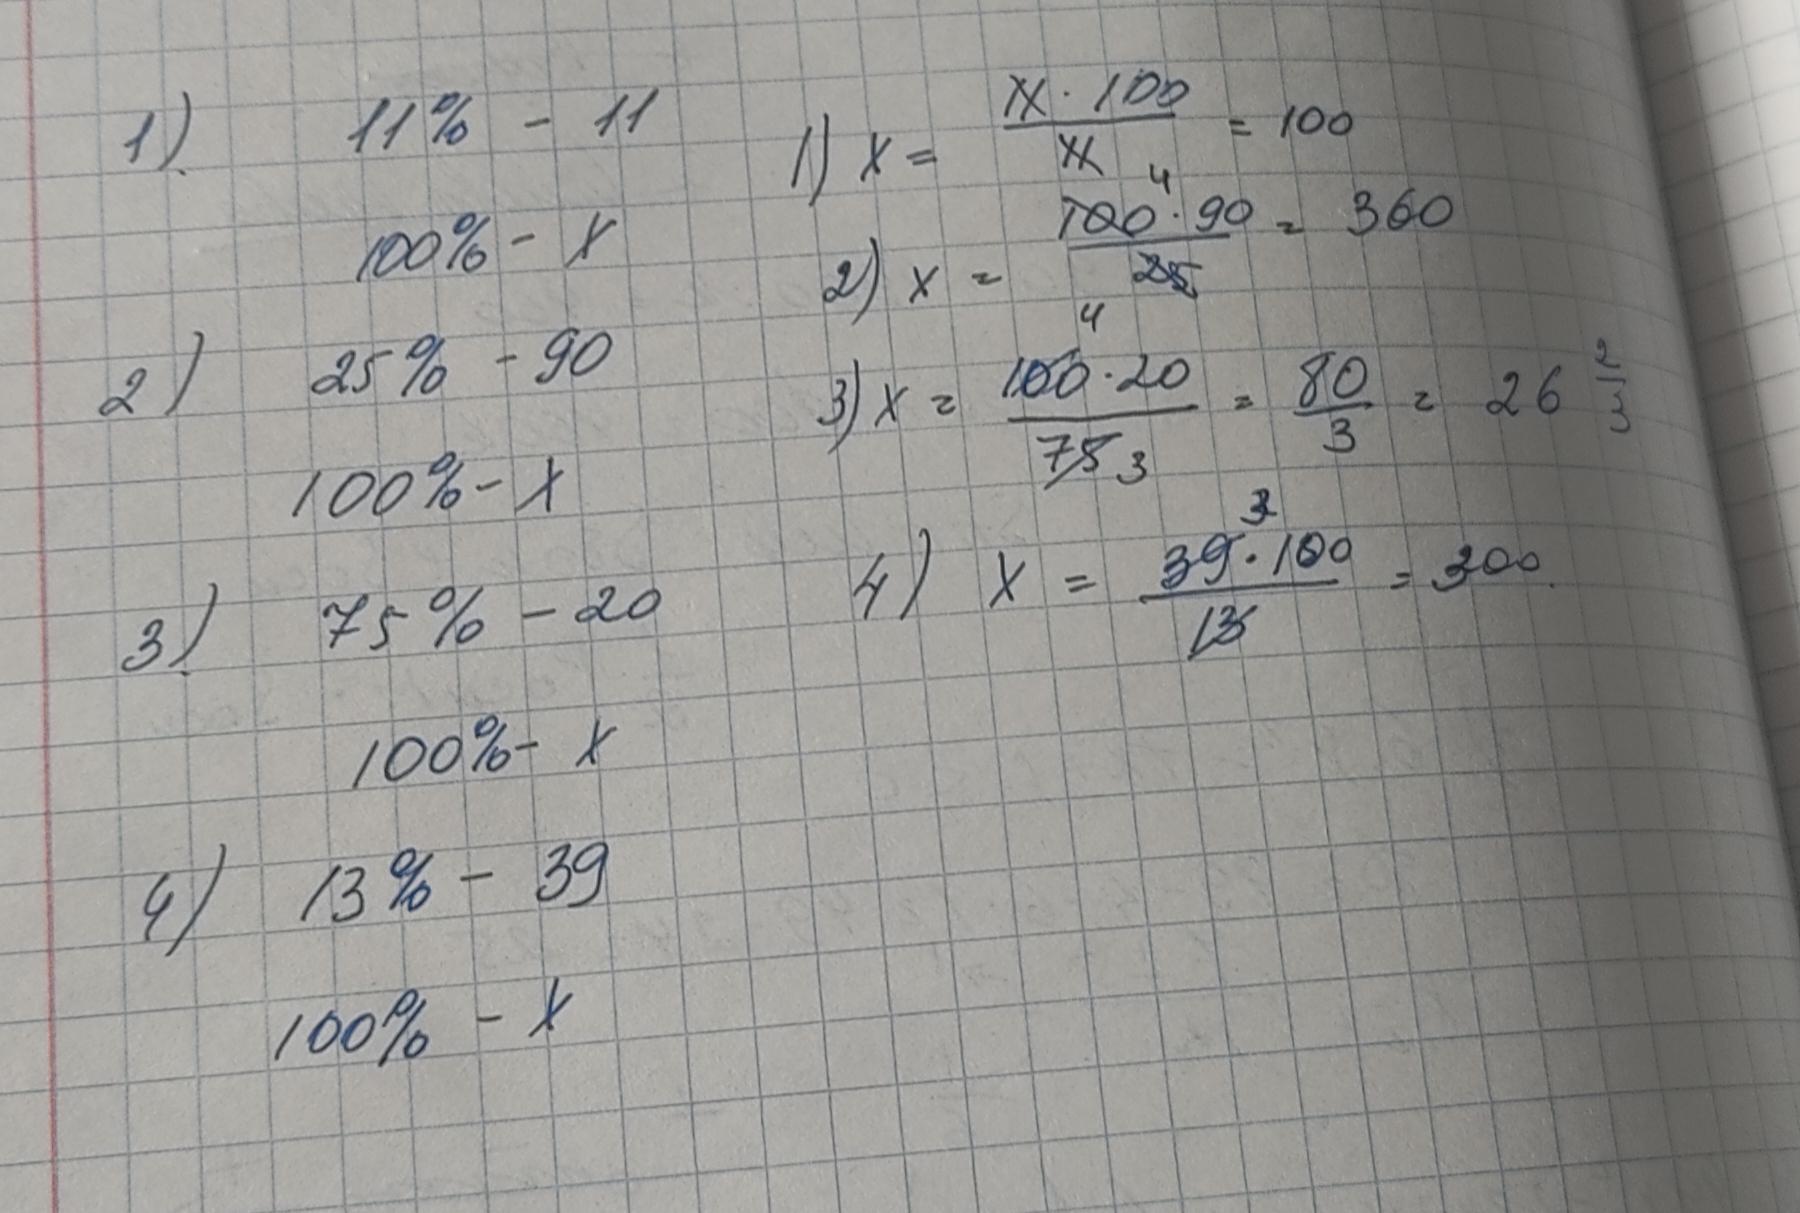 1) 11% - 11
100% - x
2) 25% - 90
100% - x
3) 75% - 20
100% - x
4) 13% - 39
100% - x
1) x = 11 · 100 / 11 = 100
2) x = 100 4 · 90 / 25 = 360
3) x = 100 4 · 20 / 75 3 = 80/3 = 26 2/3
4) x = 39 3 · 100 / 13 = 300.